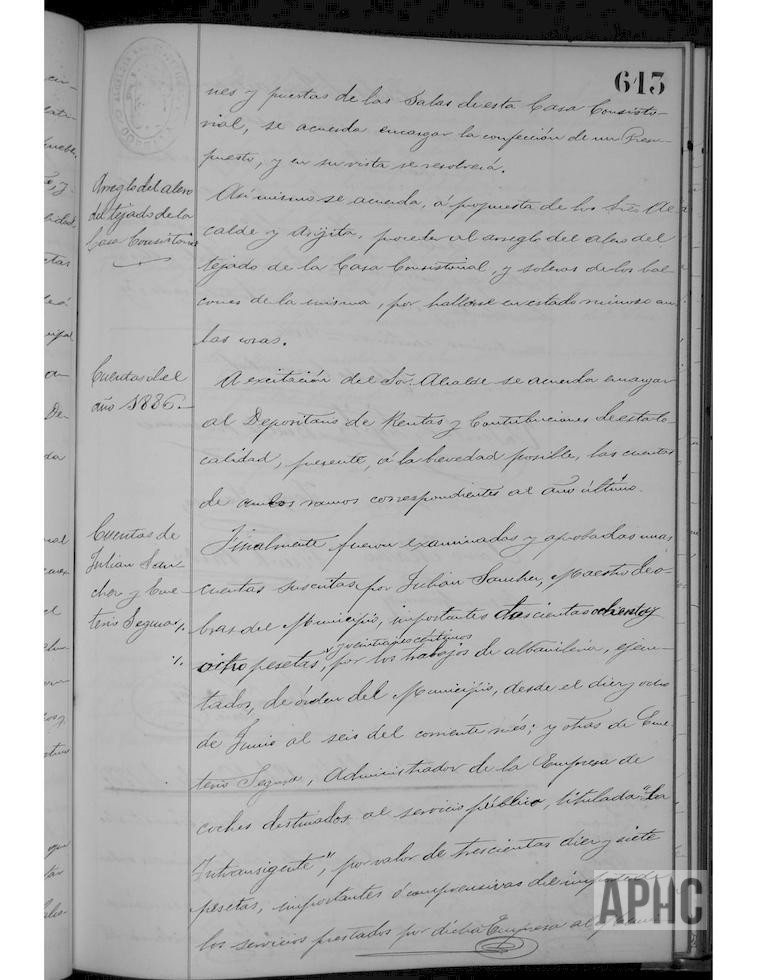 613
nes y puertas de las Salas de esta Casa Consisto-
rial, se acuerda encargar la confección de un Presu-
puesto, y en su vista se resolverá.
Arreglo del alero
del tejado de la
Casa Consistorial
Asi mismo se acuerda, á propuesta de los Sres Al
calde y proceder al arreglo del alero del
tejado de la Casa Consistorial, y soleras de los bal
cones de la misma, por hallarse en estado ruinoso am
bas cosas.
Cuentas del
año 1886.
A excitación del Sor. Alcalde se acuerda encargar
al Depositario de Rentas y Contribuciones de esta lo-
calidad, presente, á la brevedad posible, las cuentas
de ambos ramos correspondientes al año último.
Cuentas de
Julian San
chez y Eme
terio Segura
Finalmente fueron examinadas y aprobadas unas
cuentas suscritas por Julián Sanchez, Maestro de o-
bras del Municipio, importantes ochenta y
ocho pesetas, y veintitres centimos por los trabajos de albañileria, ejecu-
tados, de órden del Municipio, desde el diez y ocho
de Junio al seis del corriente més; y otras de Eme-
terio Segura, Administrador de la Empresa de
coches destinados al servicio público, titulada "La
Intransigente", por valor de trescientas diez y siete
pesetas, importantes ó comprensivas del importe de
los servicios prestados por dicha Empresa al
APHC